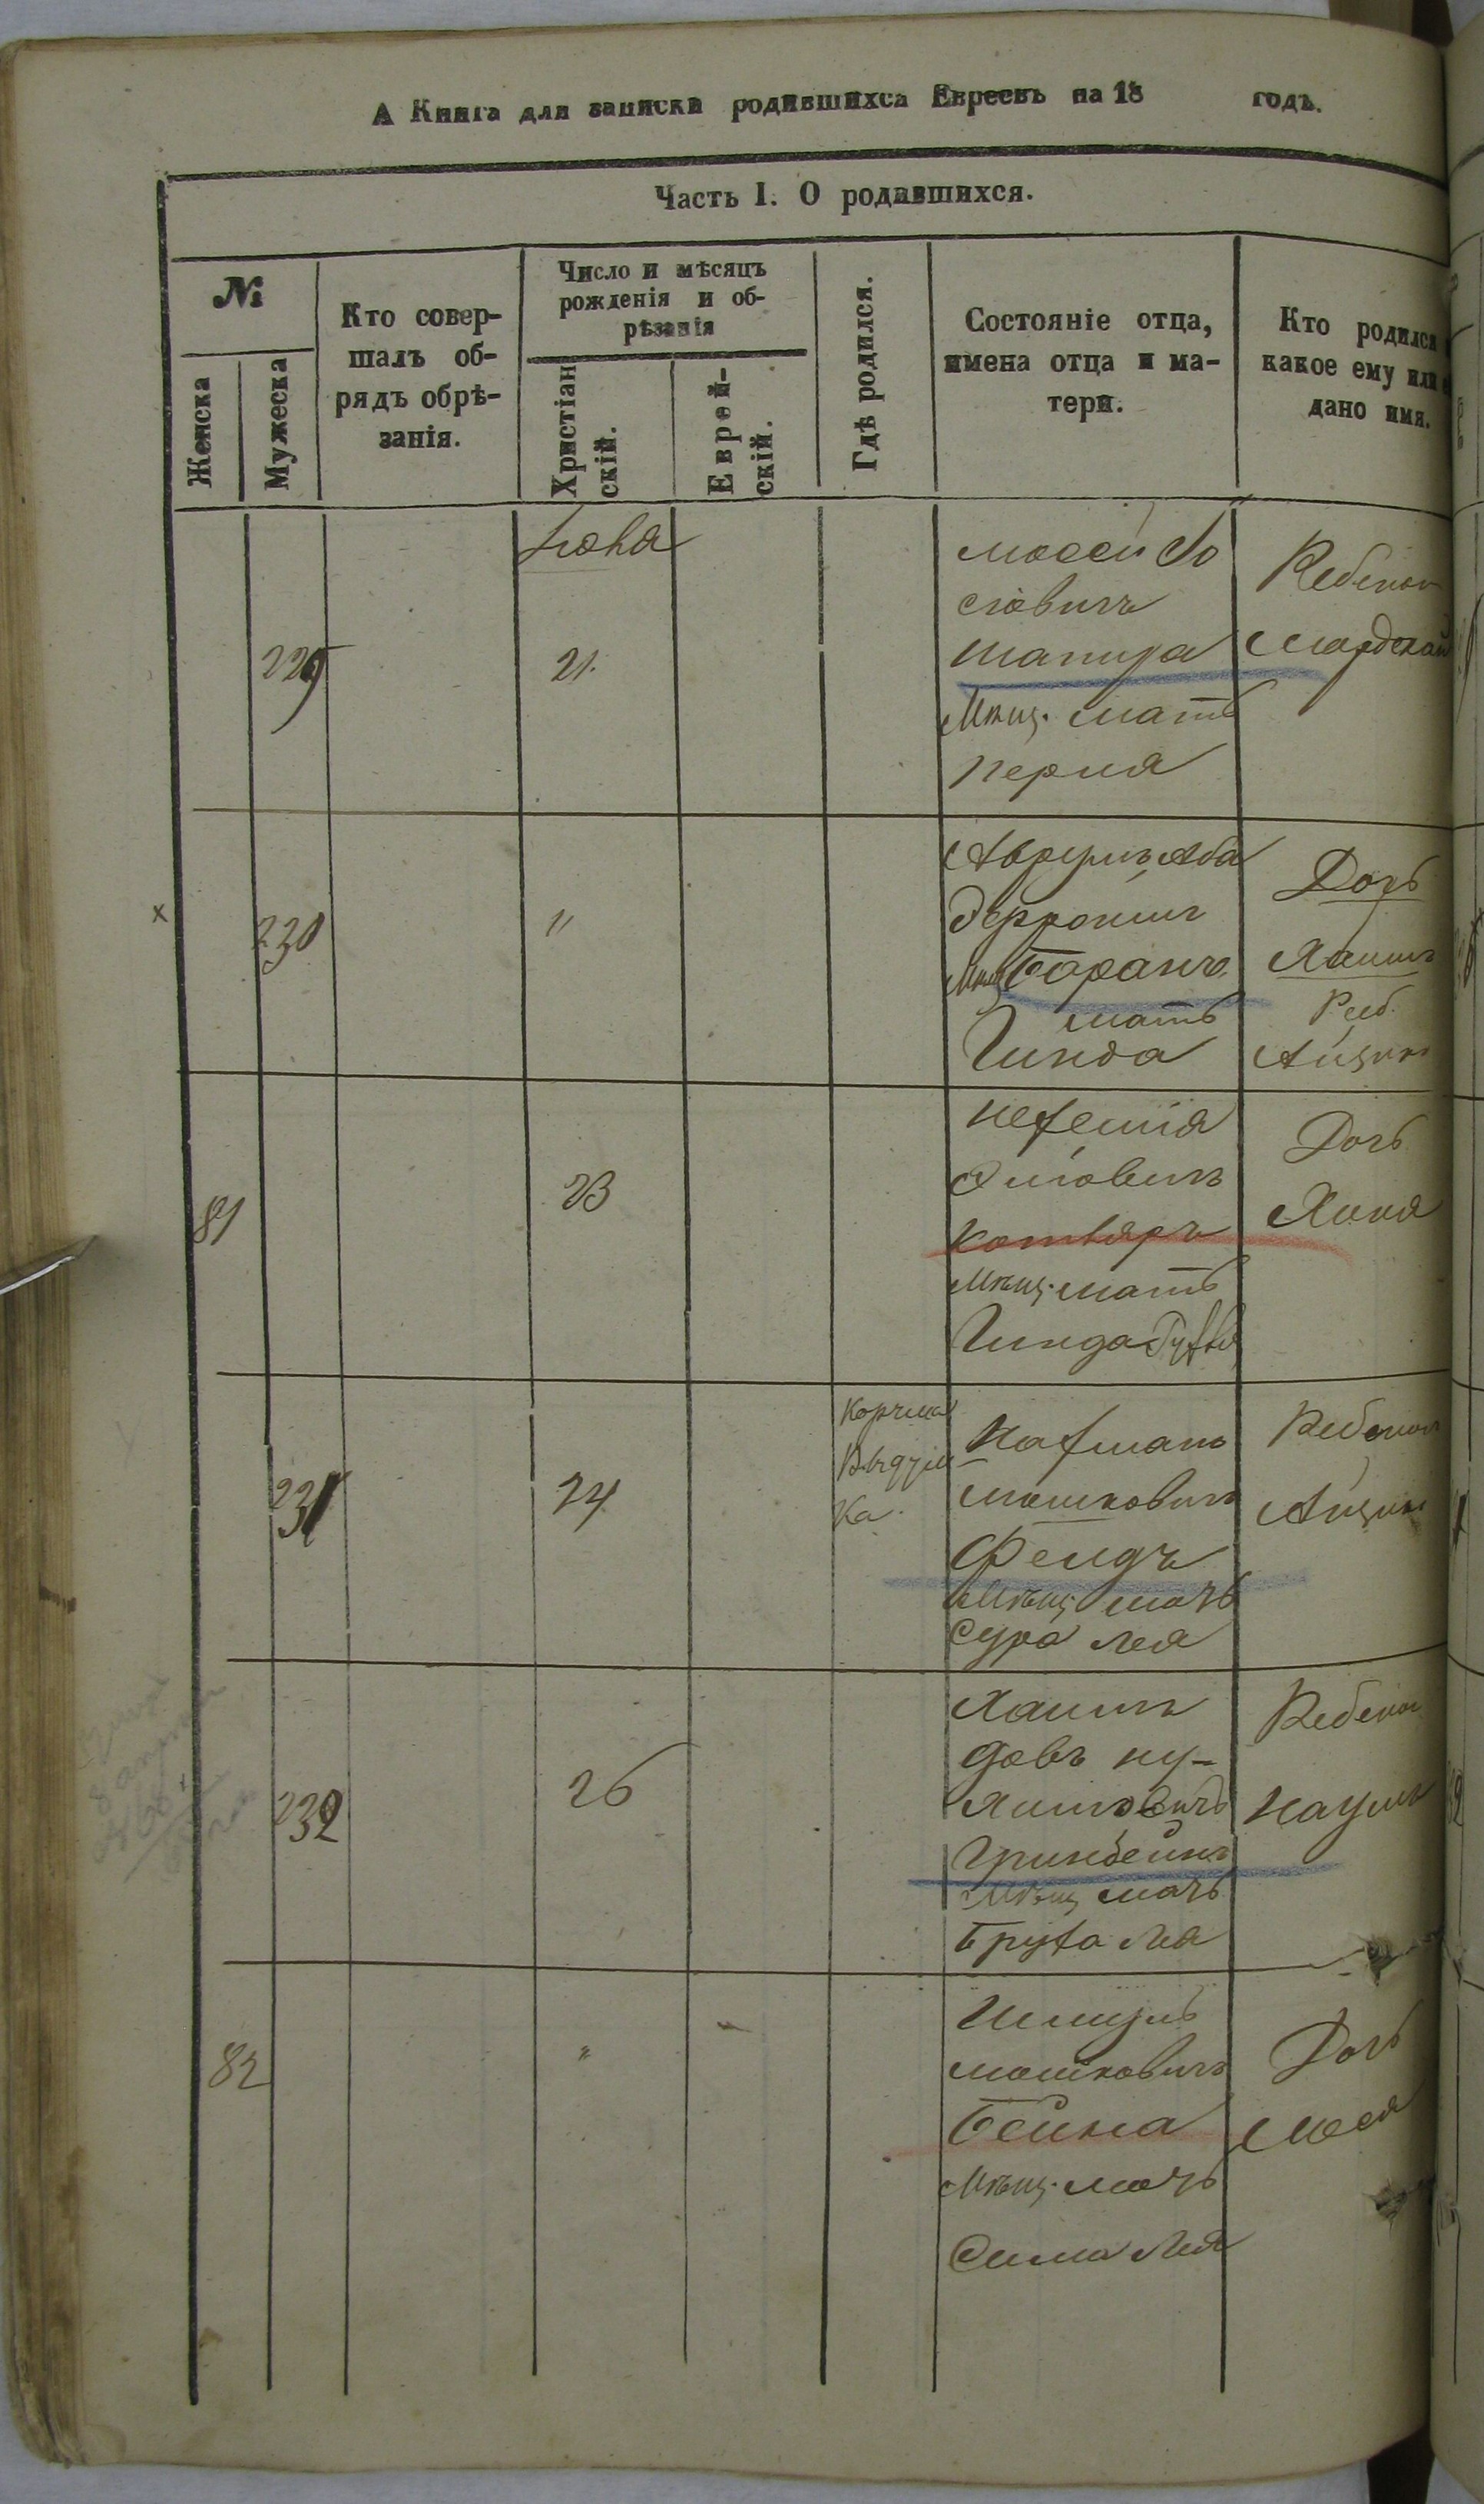 А Книга для записки родившихса Евреевъ на 18 годъ.
Часть I. О родившихся.
№
Женска
Мужеска
Кто совер-
шалъ об-
рядъ обрѣ-
занія.
Число и мѣсяцъ
рожденія и об-
рѣзанія
Христіан
скій.
Еврей-
скій.
Гдѣ родился.
Состояніе отца,
имена отца и ма-
тери.
Кто родился
какое ему или
дано имя.
229
Июня
21.
Мосей Ио
сіовичъ
Шапира
Мѣщ. мать
Перля
Ребенок
Мордехай
х
230
"
Аврумъ Аба
Мѣщ Баранъ
мать
Гинда
Дочь
Хаимъ
Реб.
Айзикъ
81
23
Котляръ
Мѣщ. мать
Гинда
Дочь
Хана
231
24
Корчма
ка.
Нахманъ
Мошковичъ
Фельдъ
Мѣщ. мать
Сура Лея
Ребенок
Айзикъ
232
26
Хаимъ
Довъ Ну-
химовичъ
Гринбейнъ
Мѣщ мать
Бруха Лея
Ребенок
Наумъ
82
"
Шмуль
Мошковичъ
Бейна
Мѣщ. мать
Сима Лея
Дочь
Мося